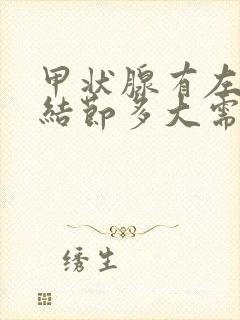 甲状腺有左
結節多大需
绣生